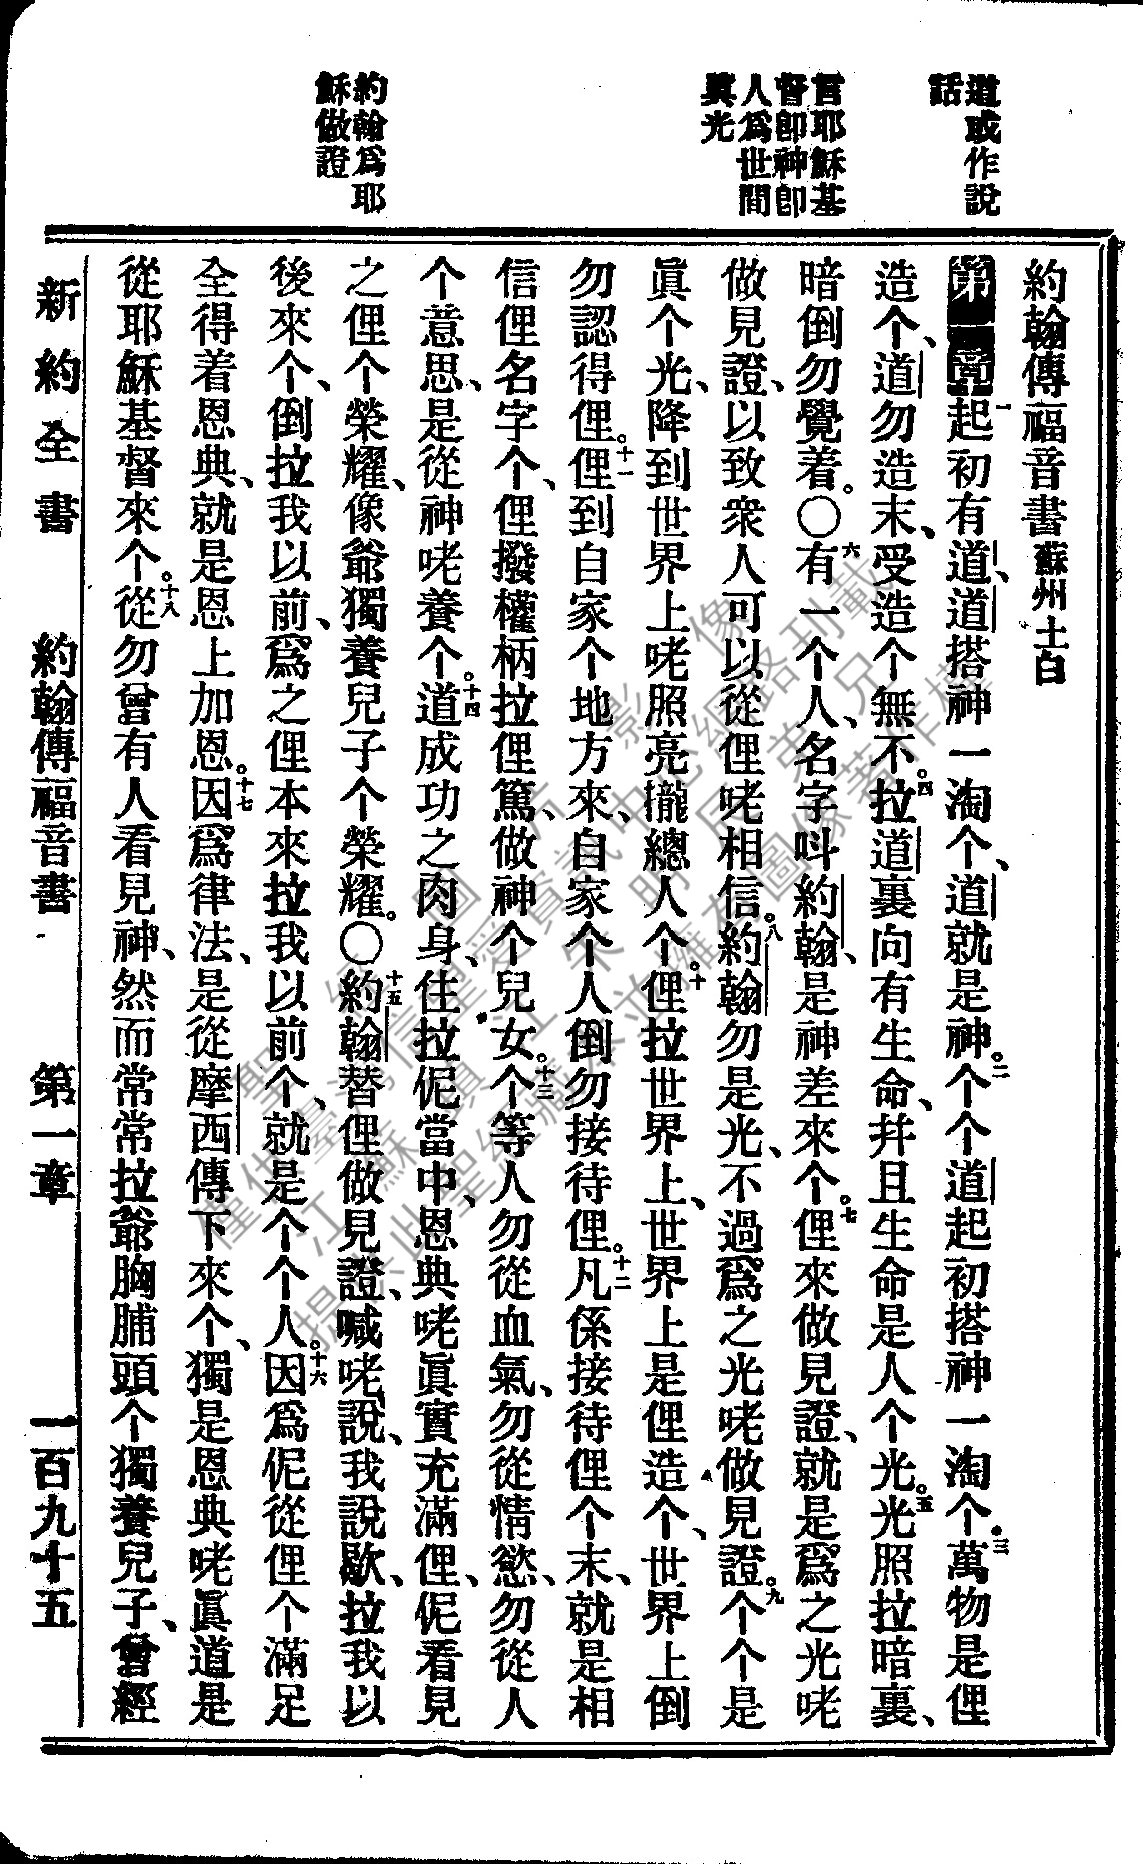 道或作說
話
言耶穌基
督卽神卽
人爲世間
眞光
約翰爲耶
穌做證
約翰傳福音書 蘇州土白
第一章 一起初有道、道搭神一淘个、道就是神。二个个道起初搭神一淘个。三萬物是俚
造个、道勿造末、受造个無不。四拉道裏向有生命、幷且生命是人个光。五光照拉暗裏、
暗倒勿覺着。〇六有一个人、名字呌約翰、是神差來个。七俚來做見證、就是爲之光咾
做見證、以致衆人可以從俚咾相信。八約翰勿是光、不過爲之光咾做見證。九个个是
眞个光、降到世界上咾照亮攏總人个。十俚拉世界上、世界上是俚造个、世界上倒
勿認得俚。十一俚到自家个地方來、自家个人倒勿接待俚。十二凡係接待俚个末、就是相
信俚名字个、俚撥權柄拉俚篤、做神个兒女。十三个等人勿從血氣、勿從情慾、勿從人
个意思、是從神咾養个。十四道成功之肉身、住拉伲當中、恩典咾眞實充滿俚、伲看見
之俚个榮耀、像爺獨養兒子个榮耀。〇十五約翰替俚做見證、喊咾說、我說歇、拉我以
後來个、倒拉我以前、爲之俚本來拉我以前个、就是个个人。十六因爲伲從俚个滿足
全得着恩典、就是恩上加恩。十七因爲律法、是從摩西傳下來个、獨是恩典咾眞道是
從耶穌基督來个。十八從勿曾有人看見神、然而常常拉爺胸脯頭个獨養兒子、曾經
新約全書 約翰傳福音書 第一章 一百九十五
聖經圖片影像
僅供臺灣信望愛資訊中心網路刊載